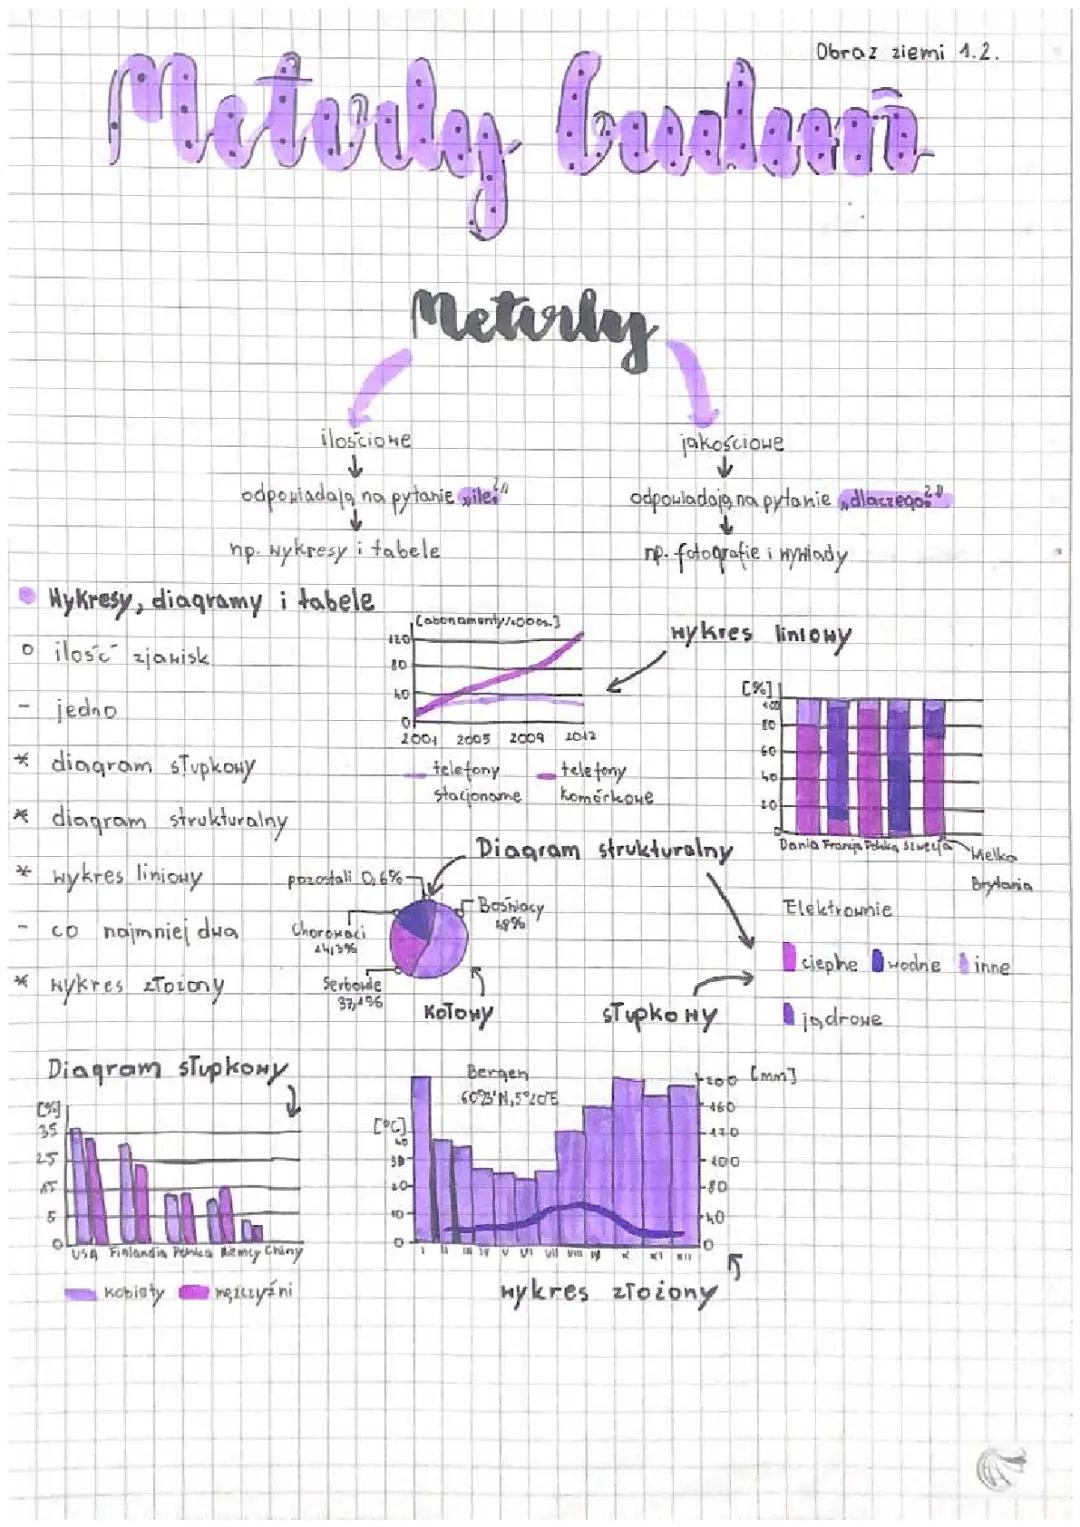 Obraz ziemi 1.2.
Metody badań
Metody
ilościowe
jakościowe
odpowiadają na pytanie „ile?"
odpowiadają na pytanie „dlaczego?"
np. wykresy i tabele
np. fotografie i wywiady
Wykresy, diagramy i tabele
ilość zjawisk
- jedno
* diagram słupkowy
* diagram strukturalny
* wykres liniowy
- co najmniej dwa
* wykres złożony
[abonamenty/1000os.]
120
80
40
0
2001 2005 2009 2012
telefony stacjonarne
telefony komórkowe
wykres liniowy
[%]
100
80
60
40
20
0
Dania Francja Polska Szwecja Wielka
Brytania
Elektrownie
cieplne wodne inne
jądrowe
Diagram strukturalny
pozostali 0,6%
Bośniacy
48%
Chorowaci
14,3%
Serbowie
37,1%
kołowy
słupkowy
Diagram słupkowy
[%]
35
25
15
5
0
USA Finlandia Polska Niemcy Chiny
kobiety mężczyźni
Bergen
[°C]
40
30
20
10
0
I II III IV V VI VII VIII IX X XI XII
[mm]
200
160
120
100
80
40
0
wykres złożony